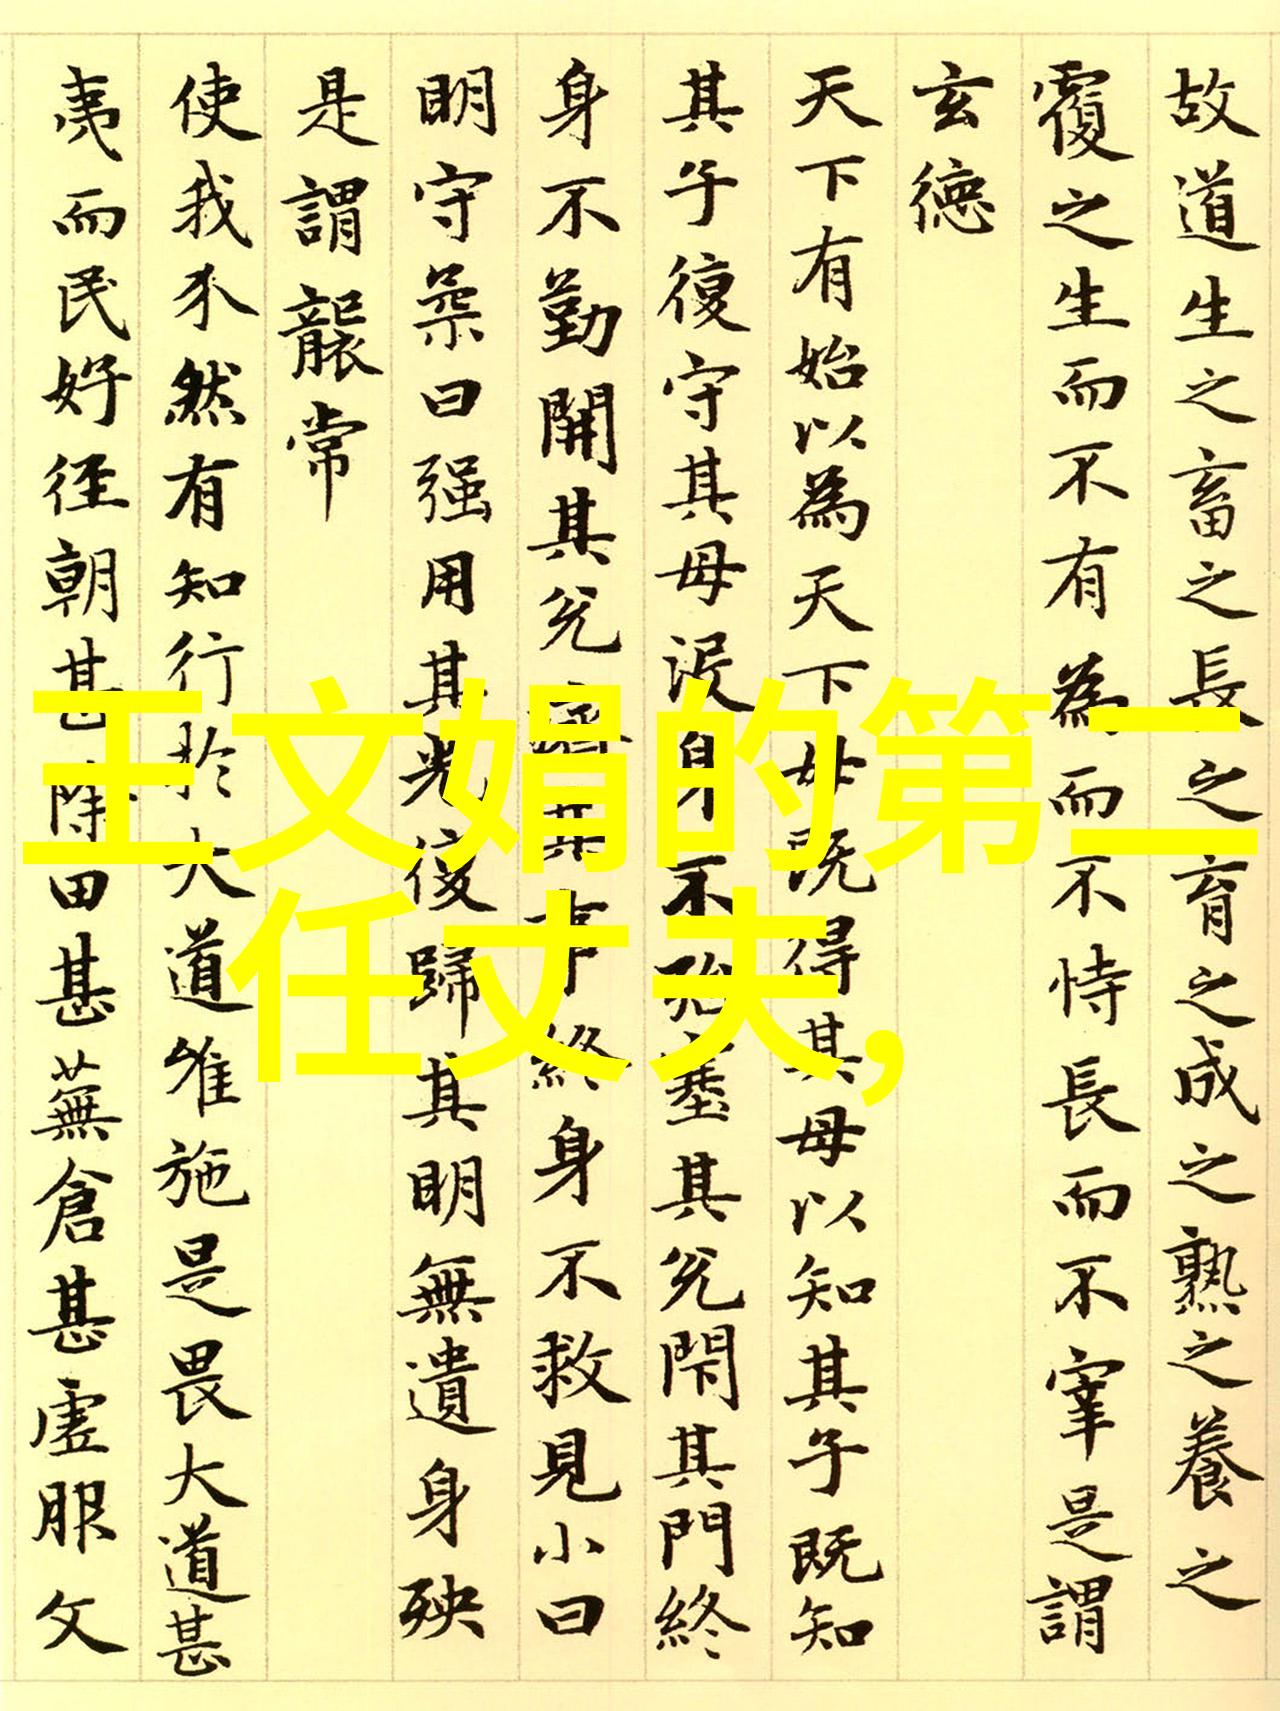 故道生之畜之長之育之成之熟之養之
覆之生而不有為而不恃長而不宰是謂
玄德
天下有始以為天下母既得其母以知其子既知
其子復守其母沒身不殆塞其兌閇其門終
身不勤開其兌濟其事終身不救見小曰
明守柔曰强用其光復歸其明無遺身殃
是謂襲常
使我介然有知行於大道唯施是畏大道甚
夷而民好徑朝甚除田甚蕪倉甚虛服文
王文娟的第二
任丈夫,